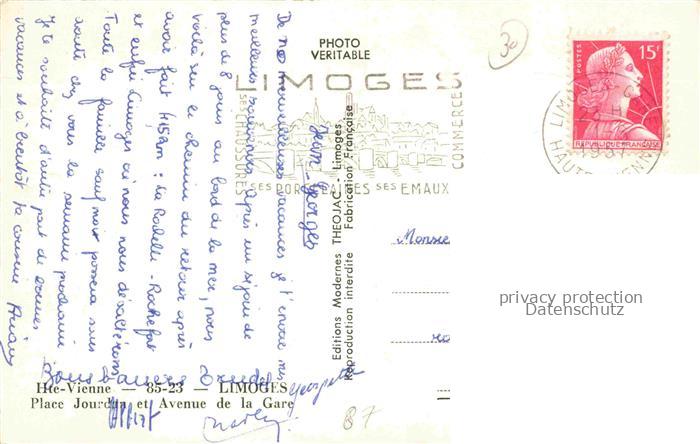 PHOTO
VERITABLE
30
LIMOGES
SES CHAUSSURES
COMMERCE
SES PORCELAINES SES EMAUX
15F
POSTES
REPUBLIQUE FRANÇAISE
LIM
HAUTE VIENNE
Jean-Georges
De nos merveilleuses vacances je t'envoie mes
meilleurs souvenirs. Après un séjour de
plus de 8 jours au bord de la mer, nous
voilà sur le chemin du retour après
avoir fait 415km : La Rochelle - Rochefort
et enfin Limoges où nous nous désaltérons
Toute la famille sauf moi passera sans
doute chez vous la semaine prochaine
Je te souhaite d'autre part de bonnes
vacances et à bientôt ta cousine
Editions Modernes THEOJAC - Limoges
Reproduction interdite Fabrication Française
Monsie
privacy protection
Datenschutz
Hte-Vienne — 85-23 — LIMOGES
Place Jourdan et Avenue de la Gare
87